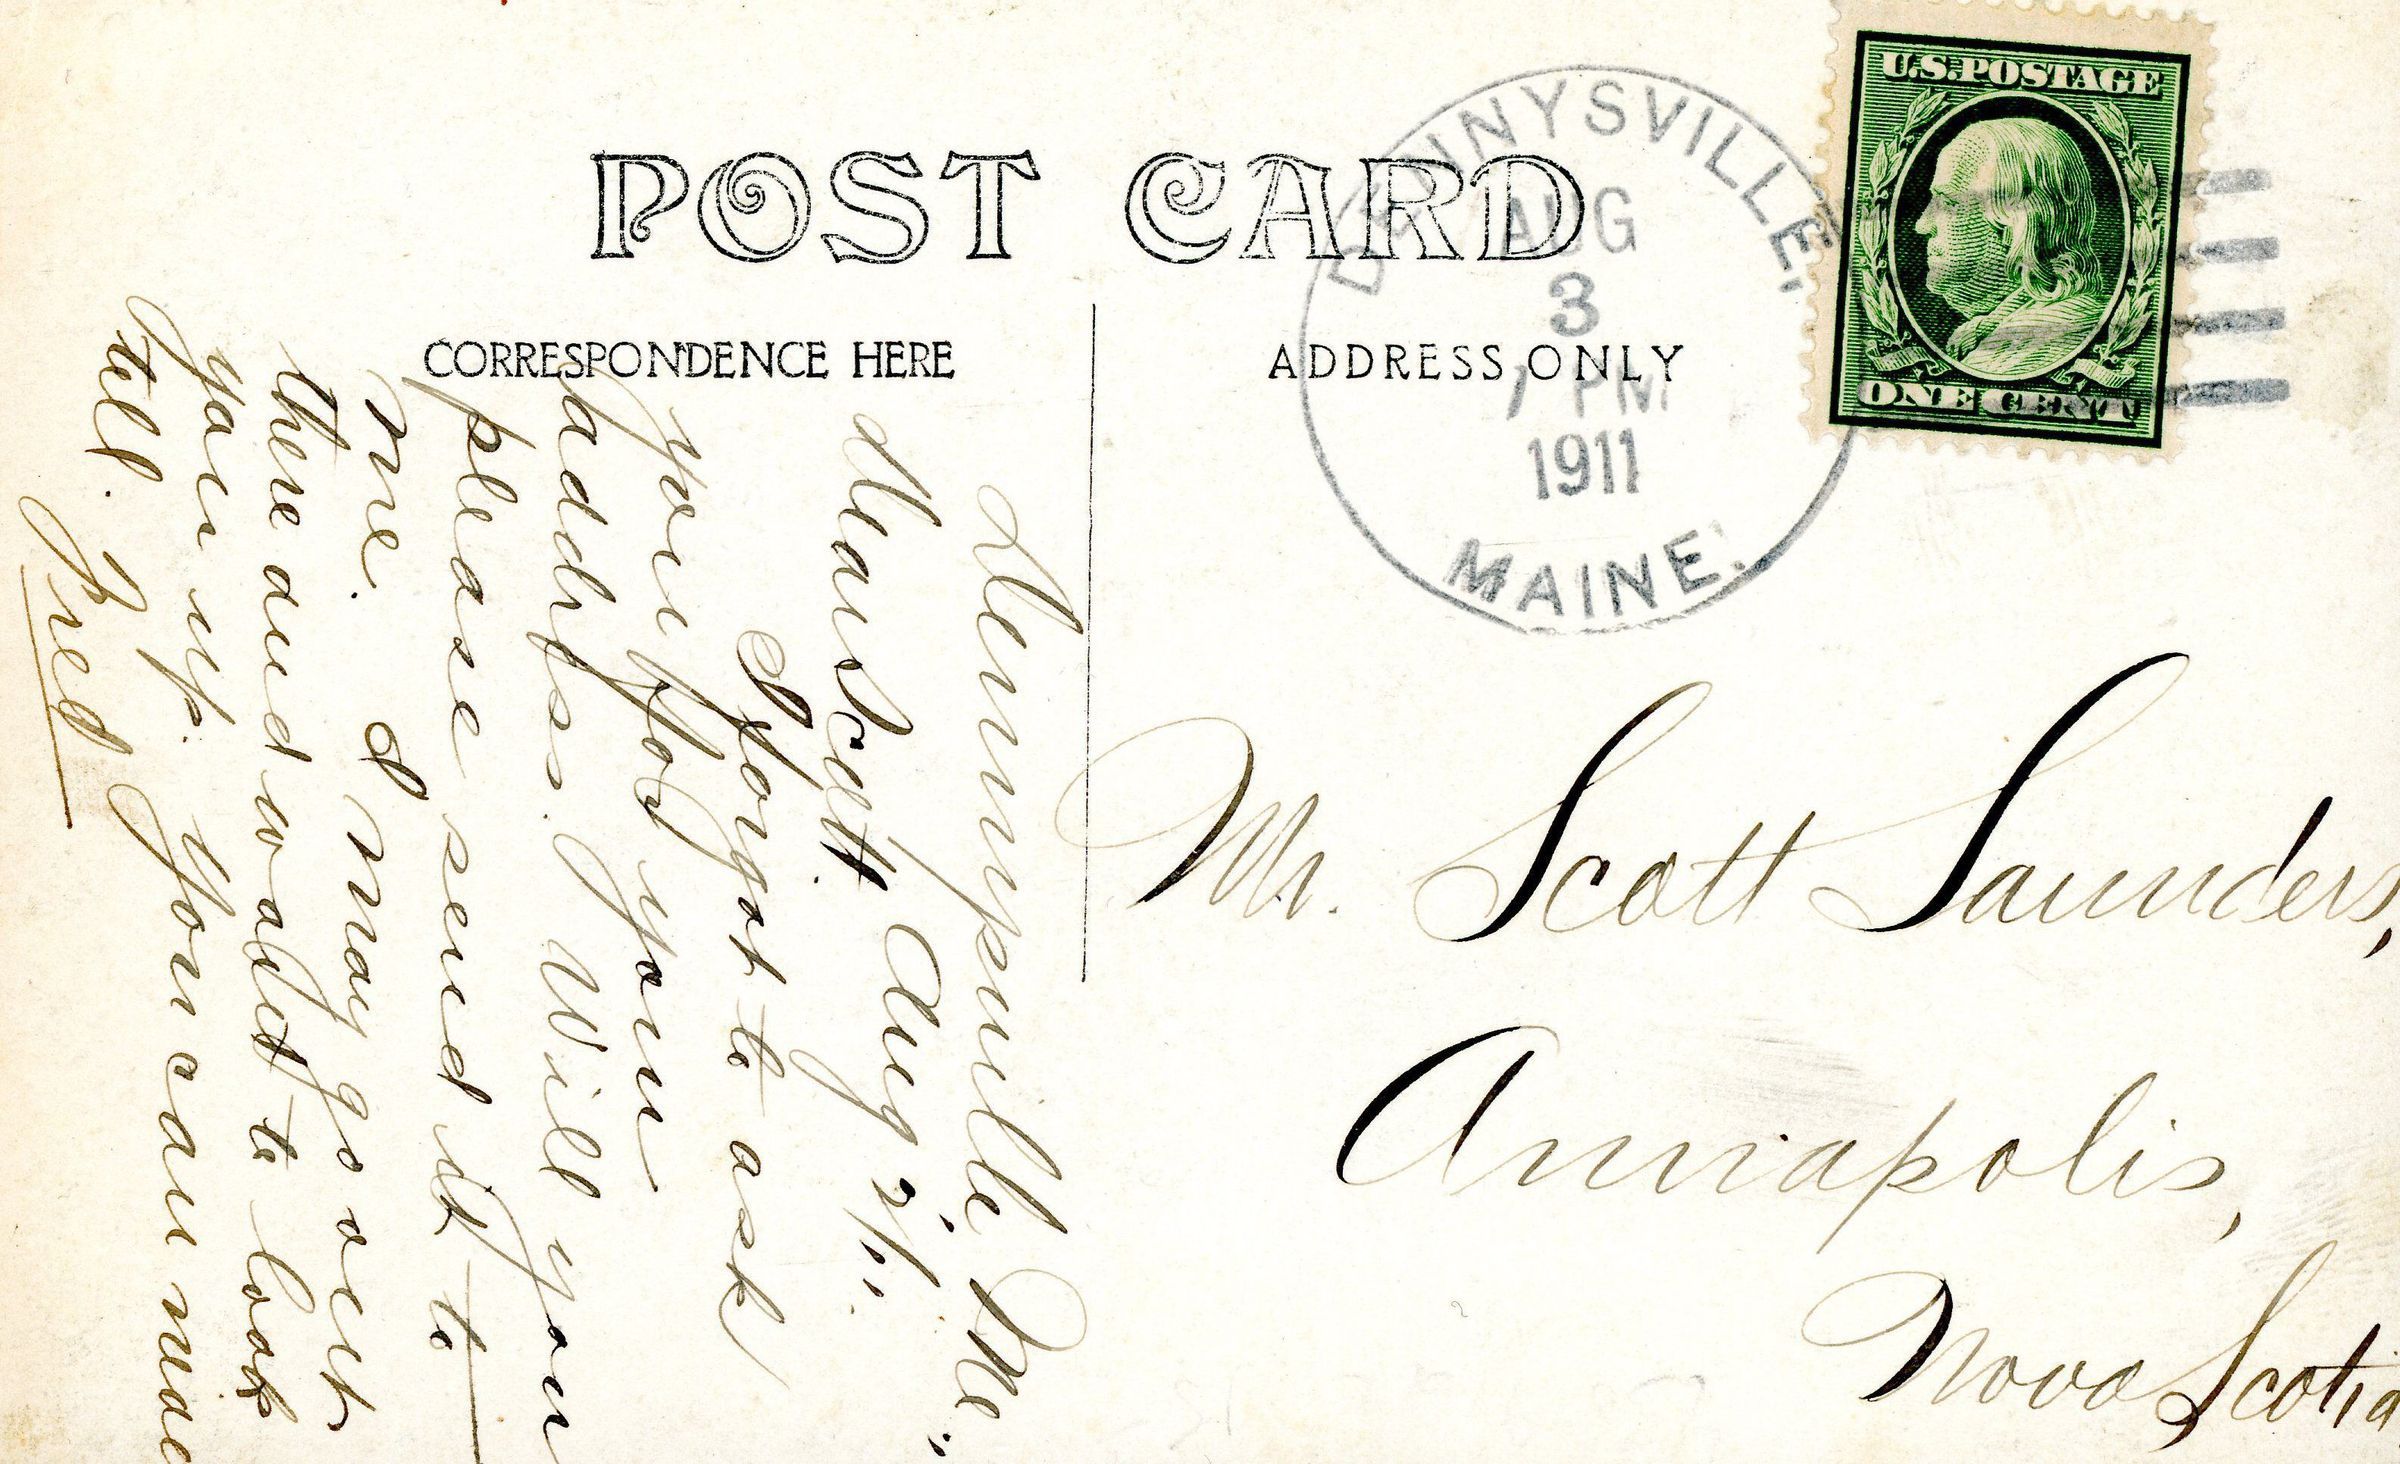 POST CARD
CORRESPONDENCE HERE
ADDRESS ONLY
DENNYSVILLE,
AUG
3
1 PM
1911
MAINE.
U.S. POSTAGE
ONE CENT
Dennysville, Me.,
Dear Scott. Aug 2/11.
I forgot to ask
you for your
address. Will you
please send it to
me. I may go out
there and want to look
you up. You can
tell. Fred
Mr. Scott Saunders,
Annapolis,
Nova Scotia